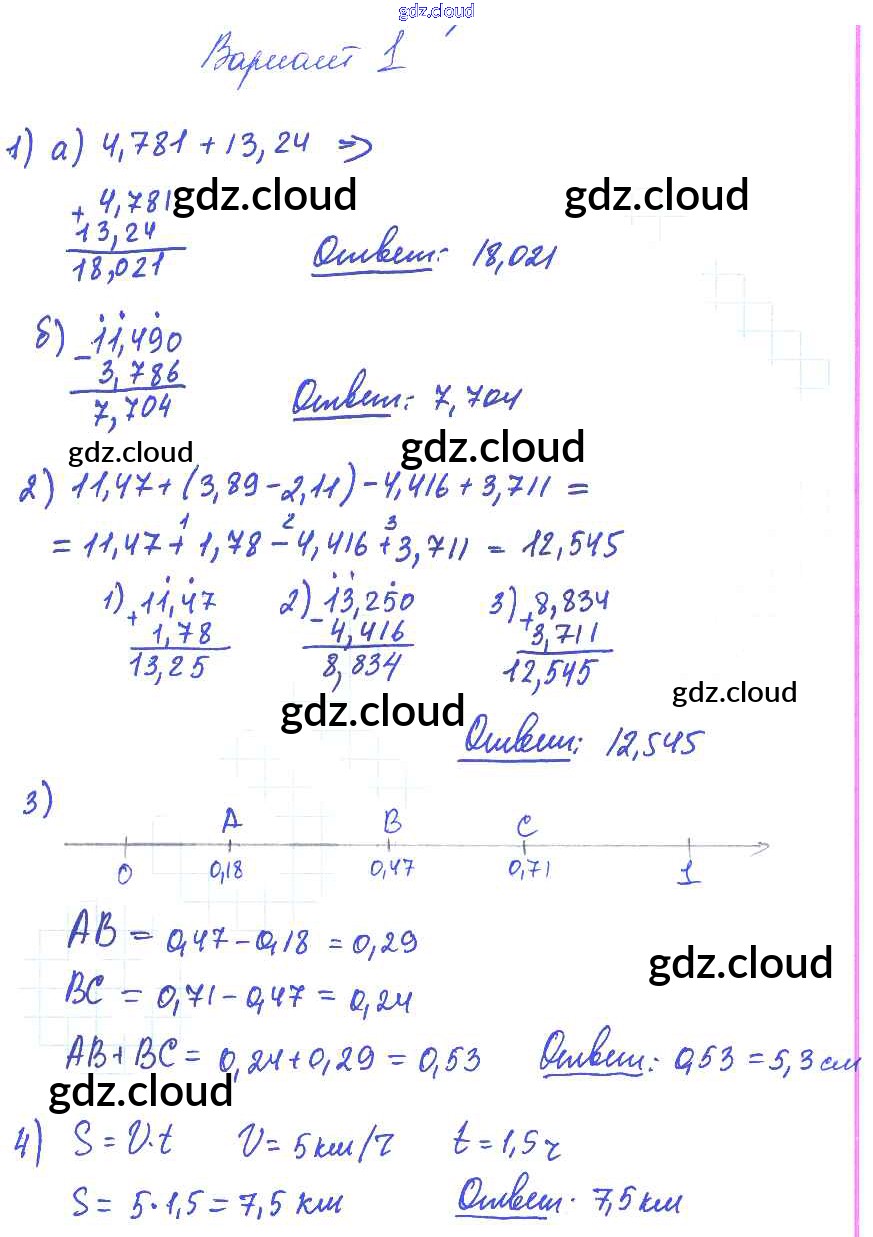 gdz.cloud
Вариант 1
1) а) 4,781 + 13,24 =>
+ 4,781 gdz.cloud gdz.cloud
13,24
18,021 Ответ: 18,021
б) - 11,490
3,786
7,704 Ответ: 7,704
gdz.cloud gdz.cloud
2) 11,47 + (3,89 - 2,11) - 4,416 + 3,711 =
1 2 3
= 11,47 + 1,78 - 4,416 + 3,711 = 12,545
1) + 11,47 2) - 13,250 3) + 8,834
1,78 4,416 3,711
13,25 8,834 12,545
gdz.cloud gdz.cloud
Ответ: 12,545
3)
A B C
0 0,18 0,47 0,71 1
AB = 0,47 - 0,18 = 0,29
gdz.cloud
BC = 0,71 - 0,47 = 0,24
AB + BC = 0,24 + 0,29 = 0,53 Ответ: 0,53 = 5,3 см
gdz.cloud
4) S = V·t V = 5 км/ч t = 1,5 ч
S = 5·1,5 = 7,5 км Ответ: 7,5 км